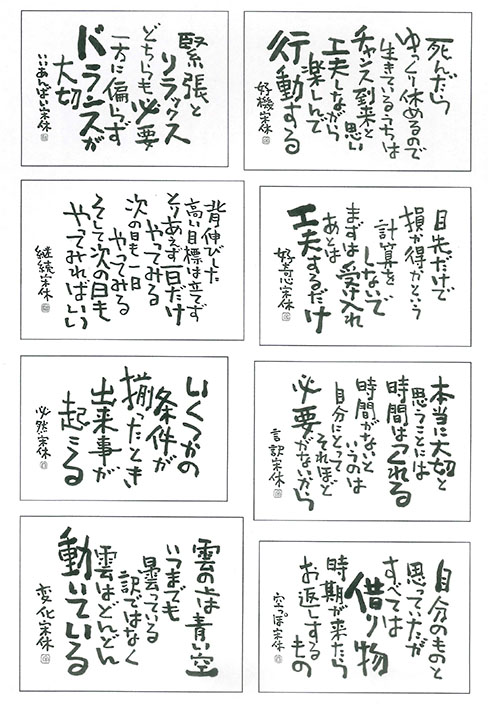 死んだら
ゆっくり休めるので
生きているうちは
チャンス到来と思い
工夫しながら
楽しんで
行動する
好機宋休
緊張と
リラックス
どちらも必要
一方に偏らず
バランスが
大切
いいあんばい宋休
目先だけで
損か得かという
計算を
しないで
まずは受け入れ
あとは
工夫するだけ
好奇心宋休
背伸びした
高い目標は立てず
とりあえず一日だけ
やってみる
次の日も一日
やってみる
そして次の日も
やってみればいい
継続宋休
本当に大切と
思うことには
時間はつくれる
時間がないと
いうのは
自分にとって
それほど
必要がないから
言訳宋休
いくつかの
条件が
揃ったとき
出来事が
起こる
必然宋休
自分のものと
思っていたが
すべては
借り物
時期が来たら
お返しする
もの
空っぽ宋休
雲の上は青い空
いつまでも
曇っている
訳ではなく
雲はどんどん
動いている
変化宋休